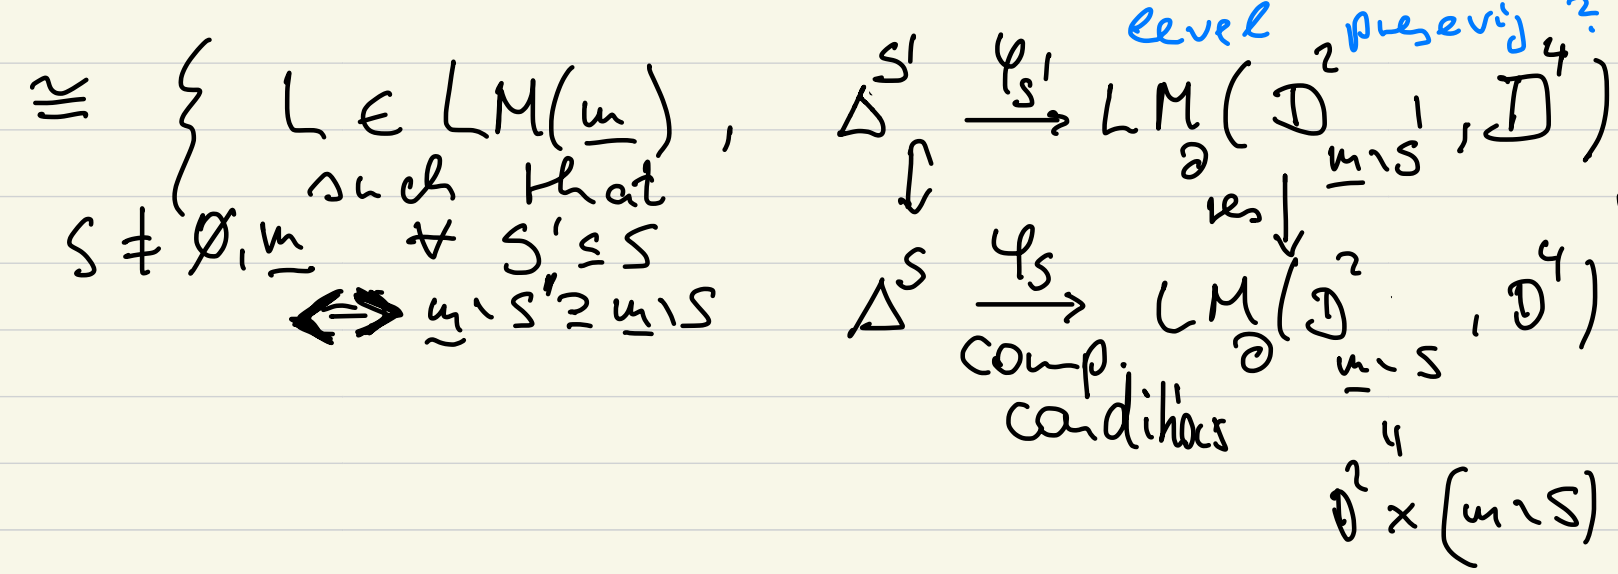 level preservig ?
≅ { L ∈ LM(m), Δ^S' —φ_S'→ LM_∂(D²_{m∖S'}, D⁴)
such that res ↓
S ≠ ∅, m ∀ S' ⊆ S Δ^S —φ_S→ LM_∂(D²_{m∖S}, D⁴)
⟺ m∖S' ⊇ m∖S
comp.
conditions
"
D² × (m∖S)